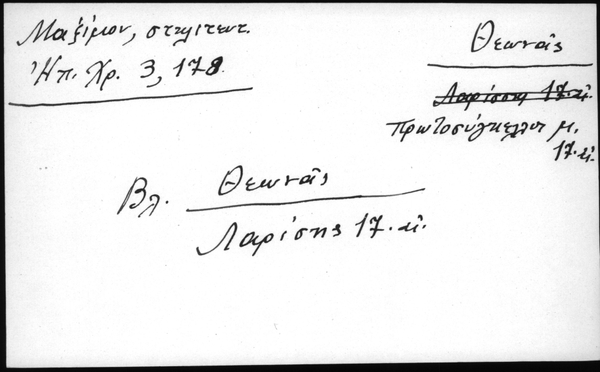 Μαξίμου, στηλιτευτ.
Ἠπ. Χρ. 3, 178
Θεωνᾶς
Λαρίσης 17. αἰ.
Πρωτοσύγκελλος μ.
17. αἰ.
Βλ. Θεωνᾶς
Λαρίσης 17. αἰ.